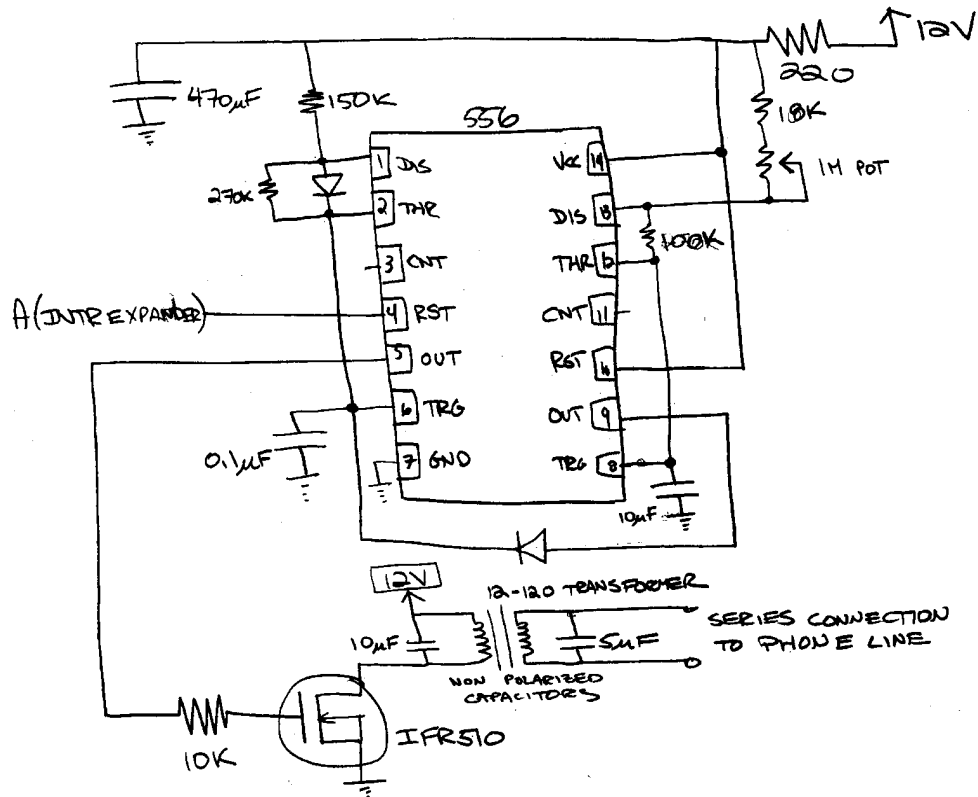 12V
220
470µF
150K
18K
1M POT
556
1 DIS
2 THR
3 CNT
4 RST
5 OUT
6 TRG
7 GND
VCC 14
DIS 13
THR 12
CNT 11
RST
OUT 9
TRG 8
270K
100K
A (INTR EXPANDER)
0.1µF
10µF
12V
12-120 TRANSFORMER
10µF
5µF
SERIES CONNECTION
TO PHONE LINE
NON POLARIZED
CAPACITORS
10K
IFR510